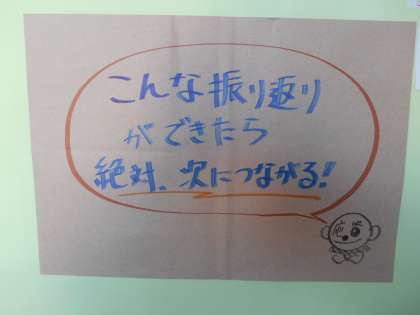 こんな振り返り
ができたら
絶対、次につながる!